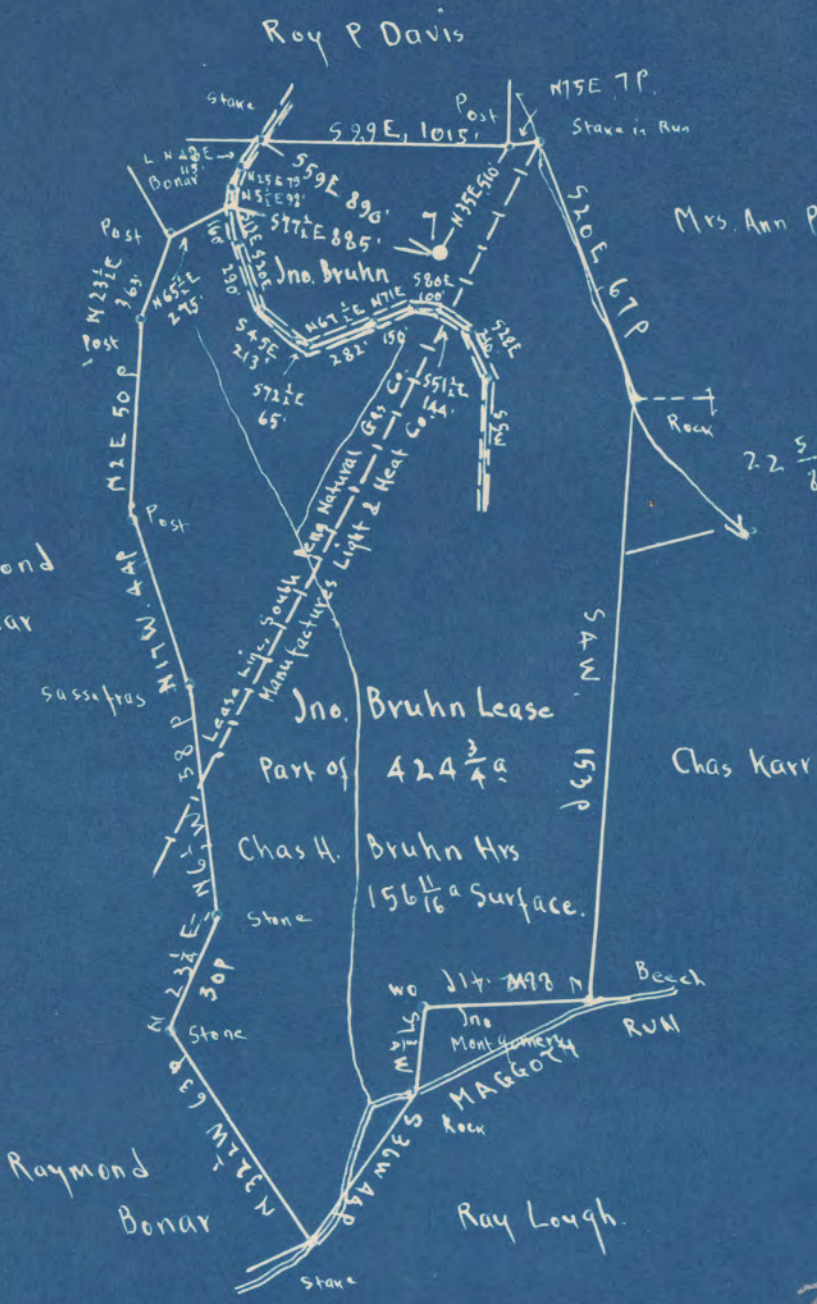 Roy P Davis
Stake
Post
N75E 7P.
S 89E, 1015'
Stake in Run
L. N 48E
115'
Bonar
N25E 79'
N5½E 98'
S59E 890'
S77½E 885'
7
N35E 510'
S20E 67P
Mrs. Ann P
Post
N65½E
295'
Jno. Bruhn
S20E
290'
S45E
213'
S72½E
65'
N67½E
282'
N71E
150'
S80E
100'
S51½E
144'
S28E
S5W
N23½E
363'
Post
Rock
22 5/8
N2E 50P
Post
ond
ar
N17W. 44P
Sassafras
Lease Line, South Penq Natural Gas Co.
Manufactures Light & Heat Co.
Jno. Bruhn Lease
Part of 424 3/4 a
Chas H. Bruhn Hrs
156 11/16 a Surface.
S4W. 153P
Chas Karr
N6½W 58P
Stone
N 23¼E
30P
Stone
WO
N88
Beech
Jno
Montgomery
MAGGOTY
RUN
Rock
N32½W 63P
S36W 44P
Raymond
Bonar
Ray Lough.
Stake